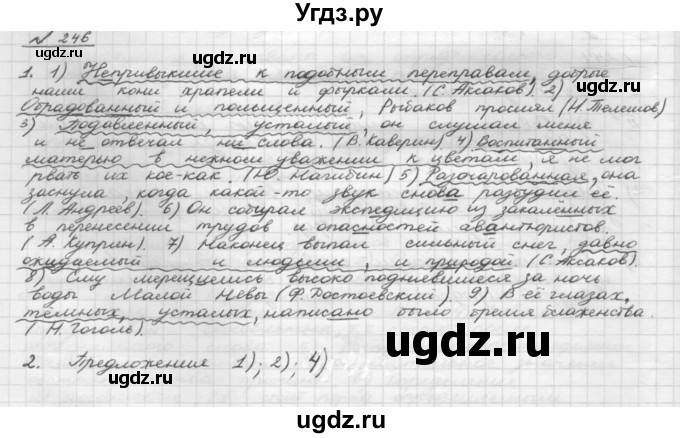 Угдз.ру
№ 246
1. 1) Непривыкшие к подобным переправам, добрые
наши кони храпели и фыркали. (С. Аксаков). 2)
Обрадованный и польщенный, Рыбаков просиял (Н. Телешов)
3) Подавленный, усталый, он слушал меня
и не отвечал ни слова. (В. Каверин). 4) Воспитанный
матерью в нежном уважении к цветам, я не мог
рвать их кое-как. (Ю. Нагибин) 5) Разочарованная, она
заснула, когда какой-то звук снова разбудил её.
(Л. Андреев). 6) Он собирал экспедицию из закалённых
в перенесении трудов и опасностей авантюристов.
(А. Куприн). 7) Наконец выпал сильный снег, давно
ожидаемый и людьми, и природой (С. Аксаков).
8) Ему мерещились высоко поднявшиеся за ночь
воды Малой Невы (Ф. Достоевский). 9) В её глазах,
темных, усталых, написано было бремя блаженства.
(Н. Гоголь).
2. Предложения 1); 2); 4)
ugdz.ru ugdz.ru ugdz.ru